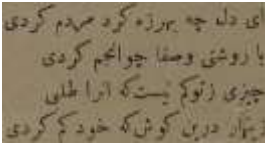 ای دل چه هرزه کرد مردم کردی
با روشنی وصفا چو انجم کردی
چیزی زتو کم نیست که آنرا طلبی
زینهار درین کوش که خود کم کردی